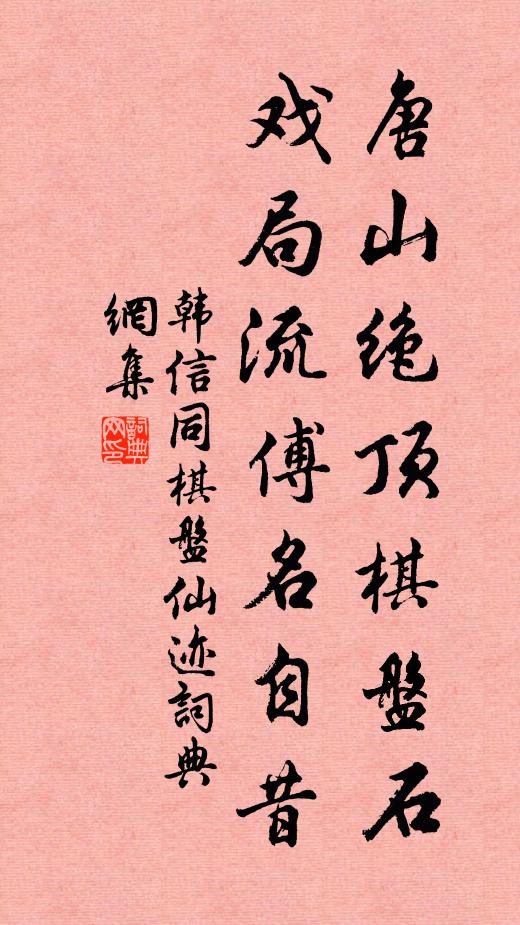 唐山绝顶棋盤石
戏局流傅名自昔
韩信同棋盤仙迹詞典
網集
詞典
网印